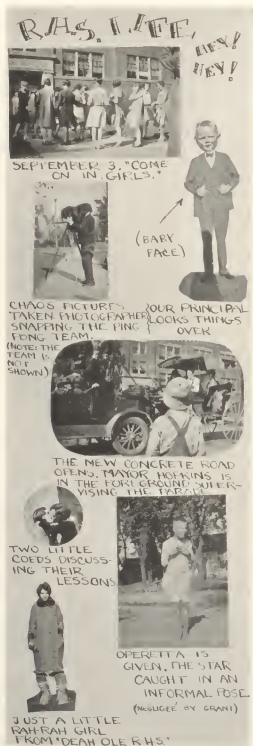 R.H.S. LIFE
HEY!
HEY!
SEPTEMBER 3, "COME
ON IN GIRLS."
(BABY
FACE)
CHAOS PICTURES
TAKEN PHOTOGRAPHER
SNAPPING THE PING
PONG TEAM.
(NOTE: THE
TEAM IS
NOT
SHOWN)
OUR PRINCIPAL
LOOKS THINGS
OVER
THE NEW CONCRETE ROAD
OPENS. MAYOR HOPKINS IS
IN THE FOREGROUND SUPER-
VISING THE PARADE
TWO LITTLE
COEDS DISCUSS-
ING THEIR
LESSONS
OPERETTA IS
GIVEN, THE STAR
CAUGHT IN AN
INFORMAL POSE
(NEGLIGEÉ BY GRANT)
JUST A LITTLE
RAH-RAH GIRL
FROM "DEAH OLE RHS."